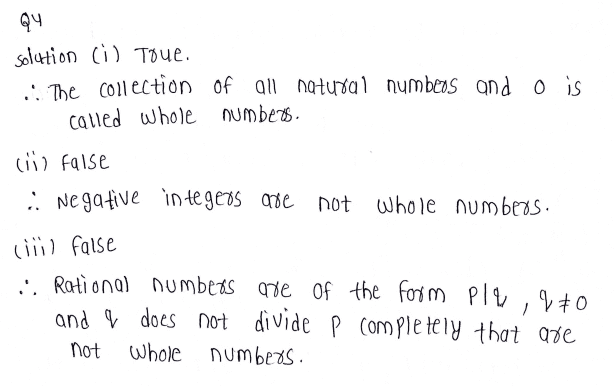 Q4
solution (i) True.
∴ The collection of all natural numbers and 0 is
called whole numbers.
(ii) false
∴ Negative integers are not whole numbers.
(iii) false
∴ Rational numbers are of the form p/q, q≠0
and q does not divide p completely that are
not whole numbers.